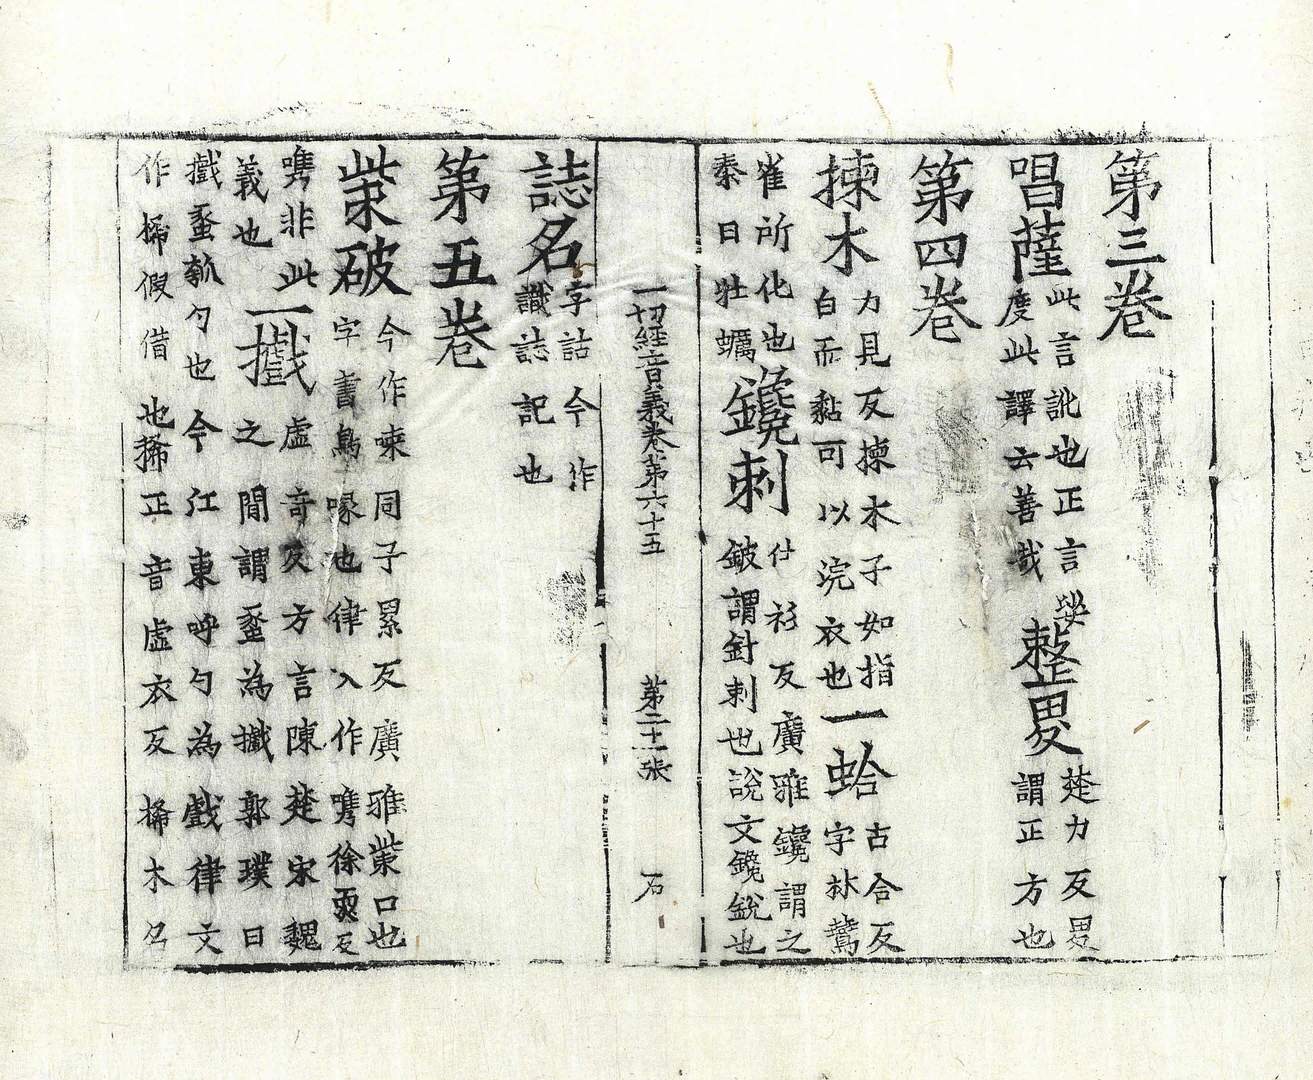 第三卷
唱薩此言訛也正言娑
度此譯云善哉整㽪楚力反㽪
謂正方也
第四卷
揀木力見反揀木子如指
白而黏可以浣衣也一蛤古合反
字林鷰
雀所化也
秦曰牡蠣鑱刺仕衫反廣雅鑱謂之
鈹謂針刺也說文鑱銳也
一切經音義卷第六十五 第二十一張 石
誌名字詁今作
識誌記也
第五卷
㭰破今作㖢同子累反廣雅㭰口也
字書鳥喙也律入作㗱徐耎反
㗱非此
義也一㩘虛奇反方言陳楚宋魏
之間謂蠡為㩘郭璞曰
㩘蠡瓠勺也今江東呼勺為戲律文
作桸假借也桸正音虛衣反桸木名